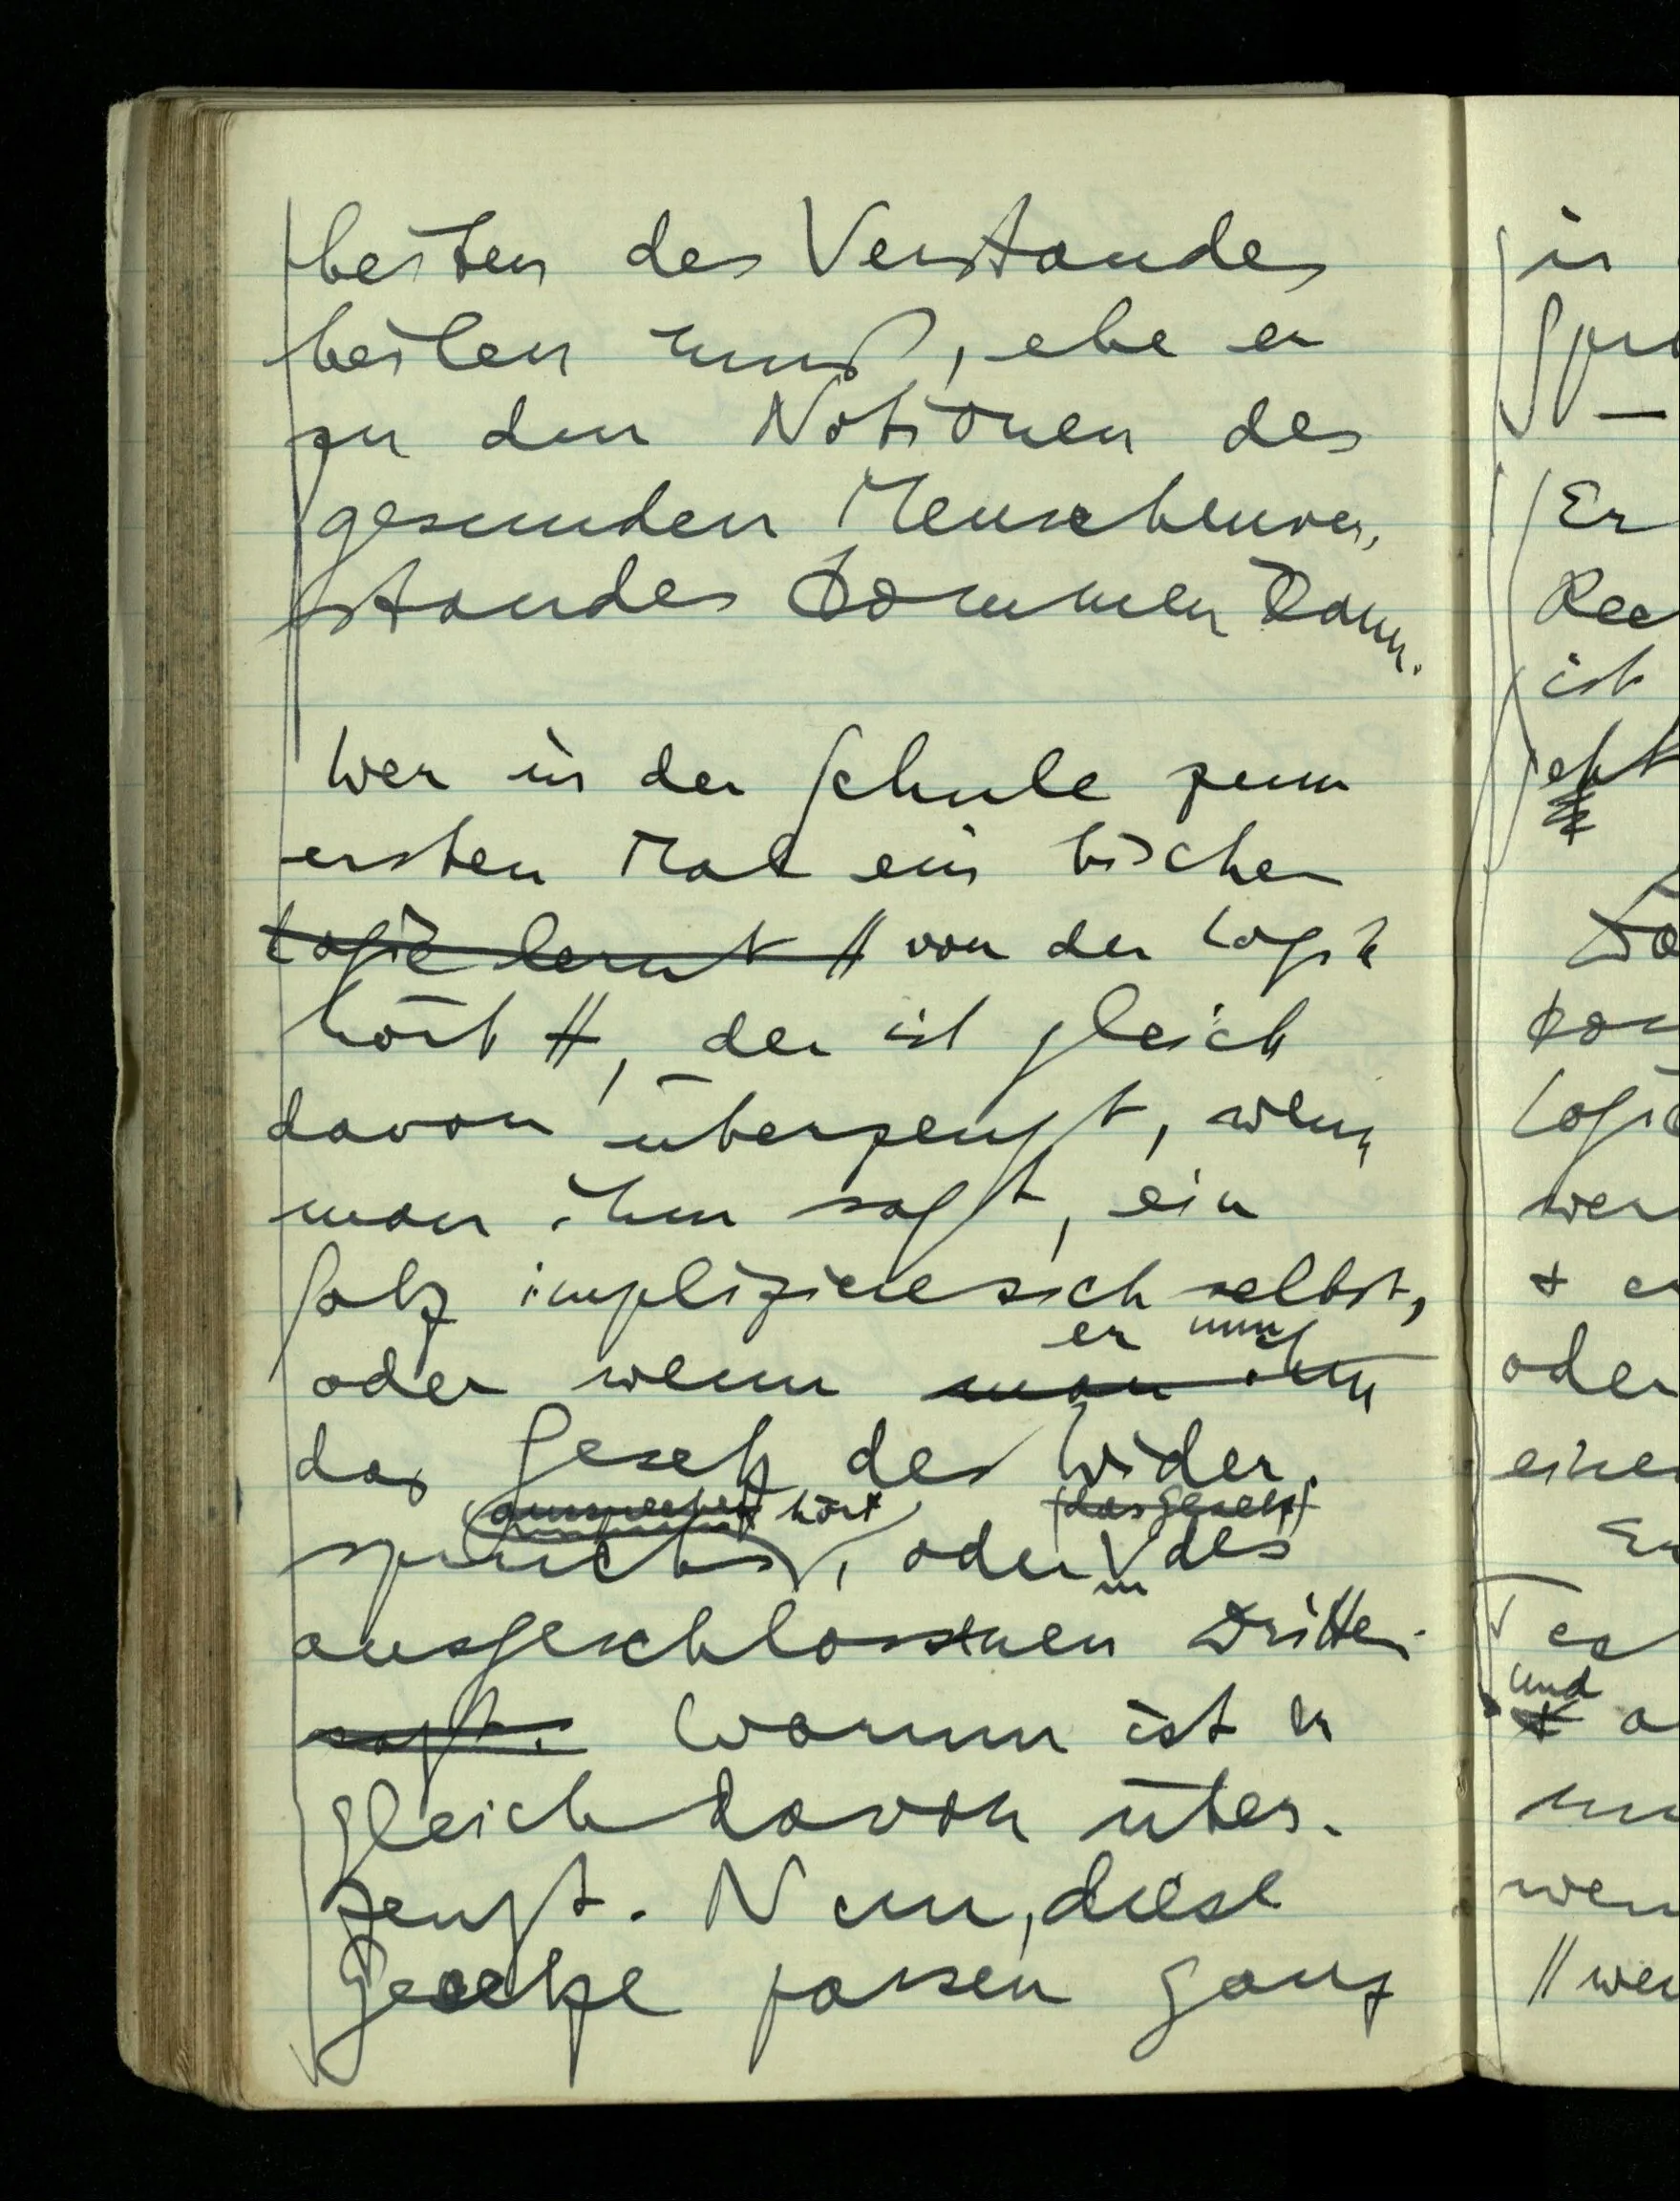 heiten des Verstandes
heilen muß, ehe er
zu den Notionen des
gesunden Menschenver-
standes kommen kann.
Wer in der Schule zum
ersten Mal ein bischen
Logik lernt // von der Logik
hört //, der ist gleich
davon überzeugt, wenn
man ihm sagt, ein
Satz impliziere sich selbst,
er nun
oder wenn man ihm
das Gesetz des Wider-
hört (das Gesetz)
spruchs, oder des
ausgeschlossnen Dritten
sagt. Warum ist er
gleich davon über-
zeugt. Nun, diese
Gesetze passen ganz
in
Er
ist
jetzt
wer
oder
und
// wer